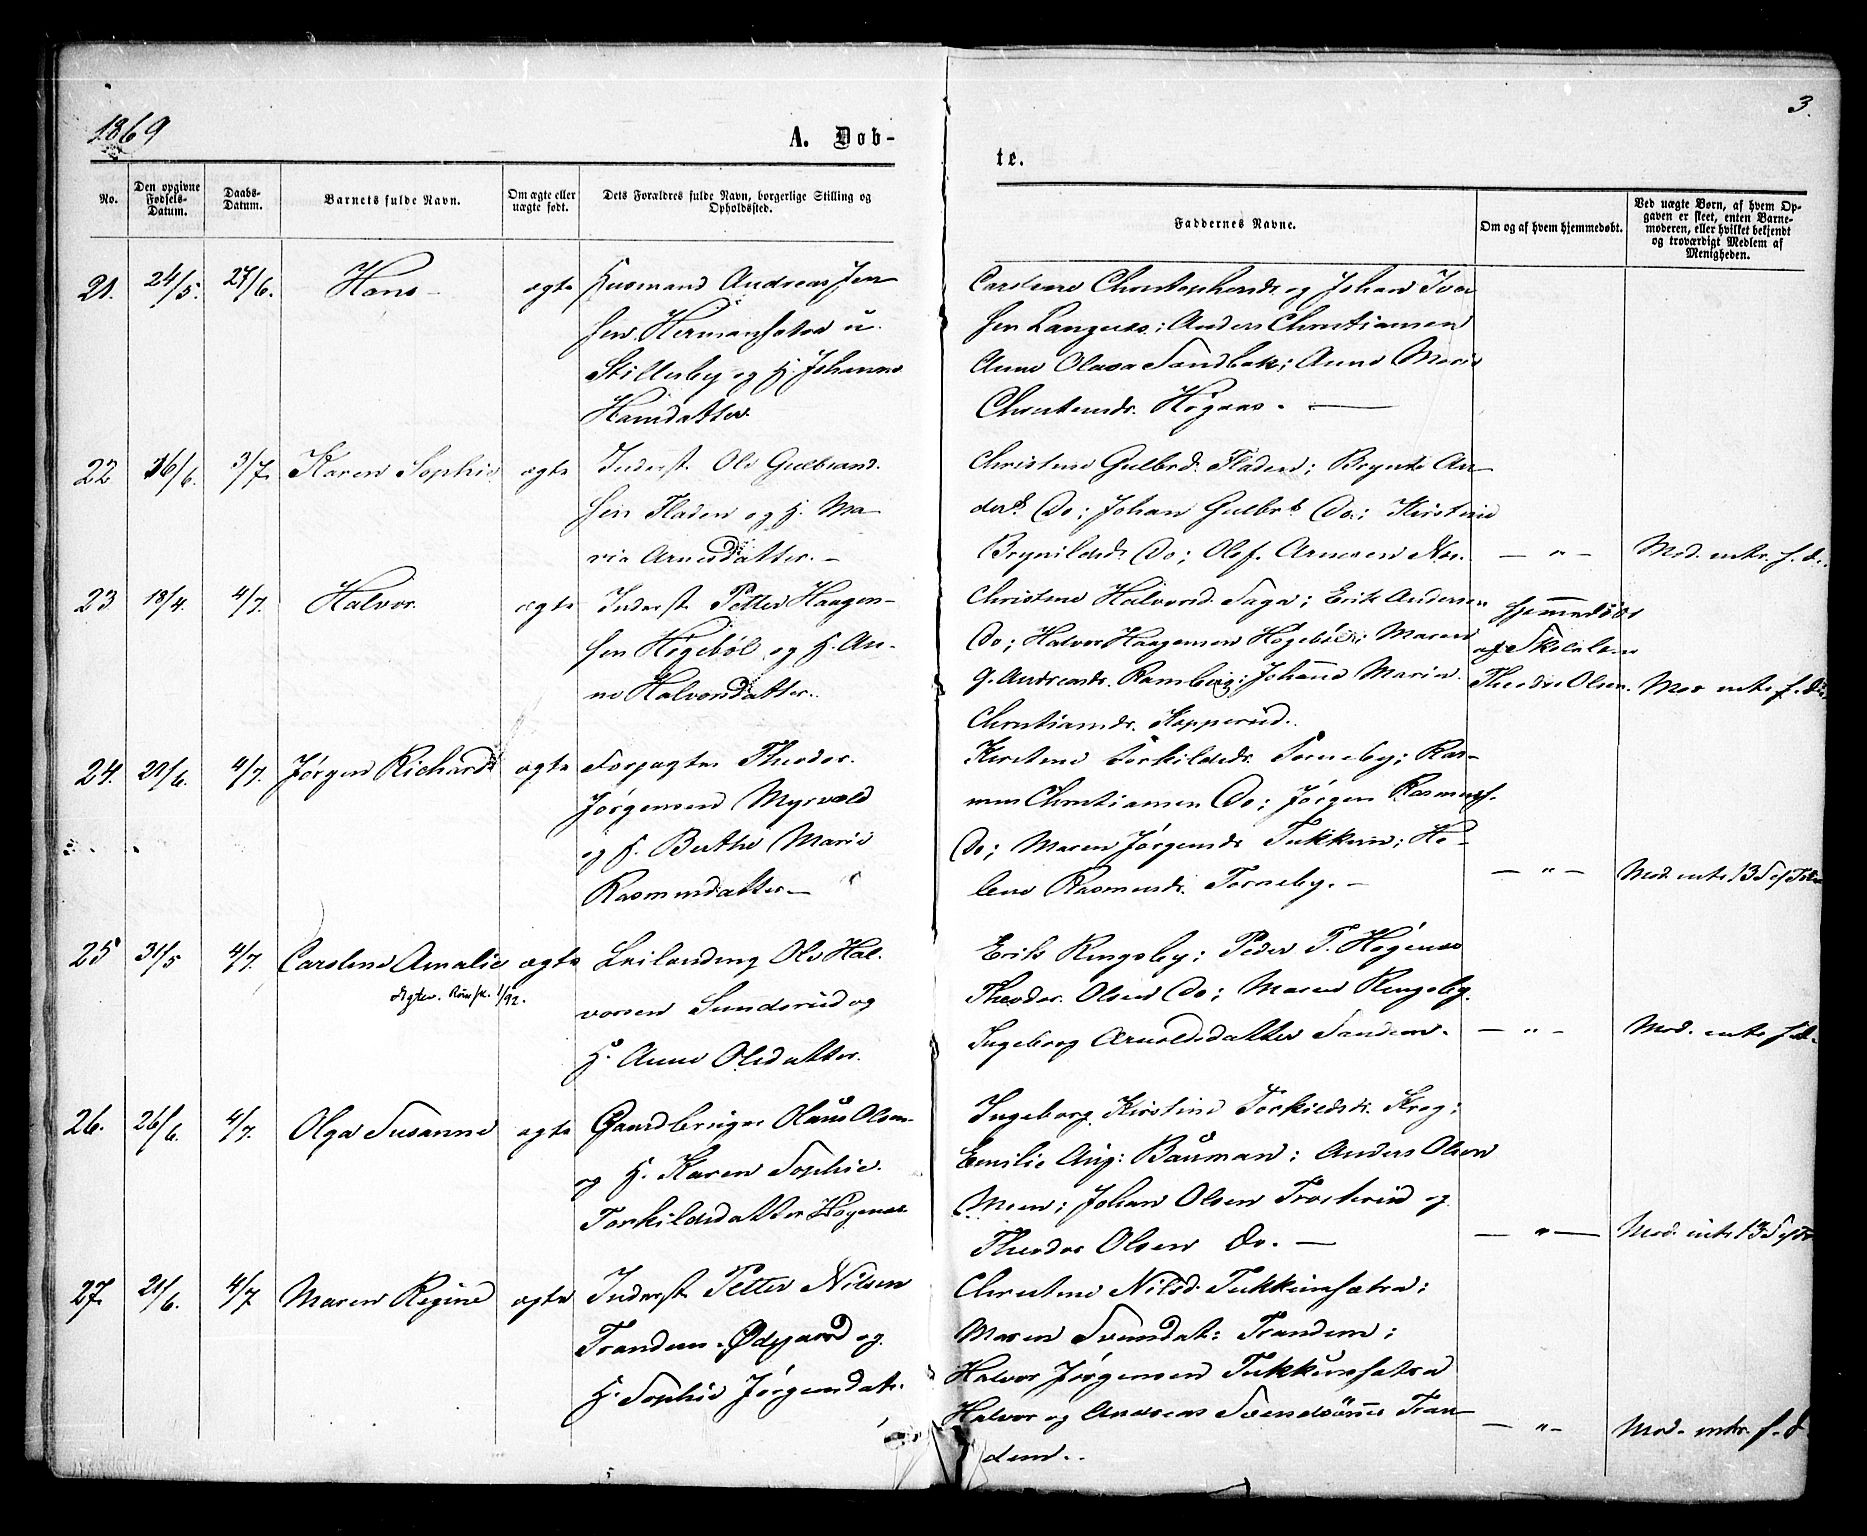 1869
3.
A. Døb-
te.
No.
Den opgivne Fødsels-Datum.
Daabs-Datum.
Barnets fulde Navn.
Om ægte eller uægte født.
Dets Forældres fulde Navn, borgerlige Stilling og Opholdssted.
Faddernes Navne.
Om og af hvem hjemmedøbt.
Ved uægte Børn, af hvem Op-
gaven er skeet, enten Barne-
moderen, eller hvilket bekjendt
og troværdigt Medlem af
Menigheden.
21. 24/5. 27/6. Hans – ægte Husmand Andreas Jen-
sen Hermansætra u.
Skillerby og H. Johanne
Hansdatter.
Caroline Christophersd. og Johan Iver
sen Langnes; Anders Christiansen
Anne Olava Sandbek; Anne Marie
Christensdr. Høgaas. —
22. 16/6. 3/7. Karen Sophie ægte Inderst Ole Gulbrand-
sen Fladen og H. Ma-
ria Arnesdatter. –
Christine Gulbrd. Fladen; Brynte An-
ders. Do; Johan Gulbr. Do; Kirstine
Brynildsd. Do; Olof. Arnesen
— " — Mod. intr. f. d.
23 18/4. 4/7. Halvor. ægte Inderst Petter Haagen-
sen Høgebøl og H. An-
ne Halvorsdatter.
Christine Halvorsd. Saga; Erik Andersen
Do; Halvor Haagensen Høgebøl; Maren
G. Andreasdr. Ramberg; Johanne Marie
Christiansdr. Kopperud.
Hjemmedøbt
af Skolelærer
Theodor Olsen. Mod intr f. d.
24. 21/6. 4/7. Jørgen Richard ægte Forpagter Theodor
Jørgensen Myrvold
og H. Berthe Marie
Rasmusdatter –
Kirstine Torkildsdr. Torneby; Ras-
mus Christiansen Do; Jørgen Rasmuss.
Do; Maren Jørgensdr. Tukkun; He-
lene Rasmusdr. Torneby. –
— " — Mod. intr 13 S. e. Tr.
25 31/5 4/7. Caroline Amalie ægte Leilending Ole Hal-
vorsen Sunderud og
H. Anne Olsdatter.
1/92.
Erik Ringsby; Peder T. Høgenæs
Theodor Olsen Do; Maren Ringsby.
Ingeborg Arnoldsdatter Sandem.
— " — Mod. intr f. d.
26. 26/6. 4/7. Olga Susanne ægte Gaardbruger Olaus Olsen
og H. Karen Sophie
Torkildsdatter Høgenæs
Ingeborg Kirstine Torkildsdr. Krog;
Emilie Aug: Bauman; Anders Olsen
Moen; Johan Olsen Trosterud og
Theodor Olsen Do. —
— " — Mod. intr 13 S. e. Tr
27. 21/6. 4/7 Maren Regine ægte Inderst Petter Nilsen
Trandem. Ødegaard og
H. Sophie Jørgensdat.
Christine Nilsd. Tukkunsætra;
Maren Svensdat: Trandem;
Halvor Jørgensen Tukkunsætra
Halvor og Andreas Svendsønner Tran-
dem..
— " — Mod. intr. f. d